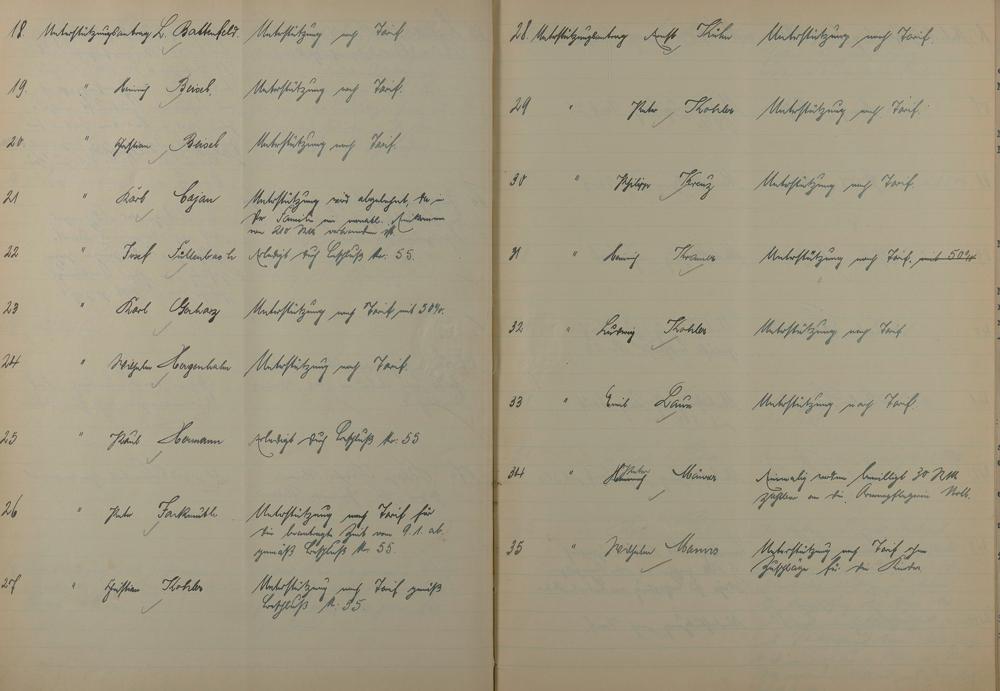 18. Unterstützungsantrag L. Battenfeld. Unterstützung nach Tarif.
19. " Heinrich Beisel. Unterstützung nach Tarif.
20. " Christian Beisel Unterstützung nach Tarif.
21 " Karl Cajan Unterstützung wird abgelehnt, da in
der Familie ein monatl. Einkommen
von 210 Mk vorhanden ist.
22 " Josef Füllenbach Erledigt durch Beschluß Nr. 55.
23 " Karl Gerharz Unterstützung nach Tarif mit 50%.
24 " Wilhelm Hergenhahn Unterstützung nach Tarif.
25 " Paul Hermann Erledigt durch Beschluß Nr. 55
26 " Peter Unterstützung nach Tarif für
die beantragte Zeit vom 9.1. ab
gemäß Beschluß Nr. 55.
27 " Christian Kohler Unterstützung nach Tarif gemäß
Beschluß Nr. 55.
28. Unterstützungsantrag Kühn Unterstützung nach Tarif.
29 " Peter Kohler Unterstützung nach Tarif.
30 " Philipp Kreuz Unterstützung nach Tarif.
31 " Heinrich Kramer Unterstützung nach Tarif, mit 50%
32 " Ludwig Kohler Unterstützung nach Tarif
33 " Emil Laux Unterstützung nach Tarif.
34 " Peter Einmalig werden bewilligt 30 Mk
zahlbar an die Armenpflegerin
35 " Wilhelm Manns Unterstützung nach Tarif ohne
Zuschläge für die Kinder.